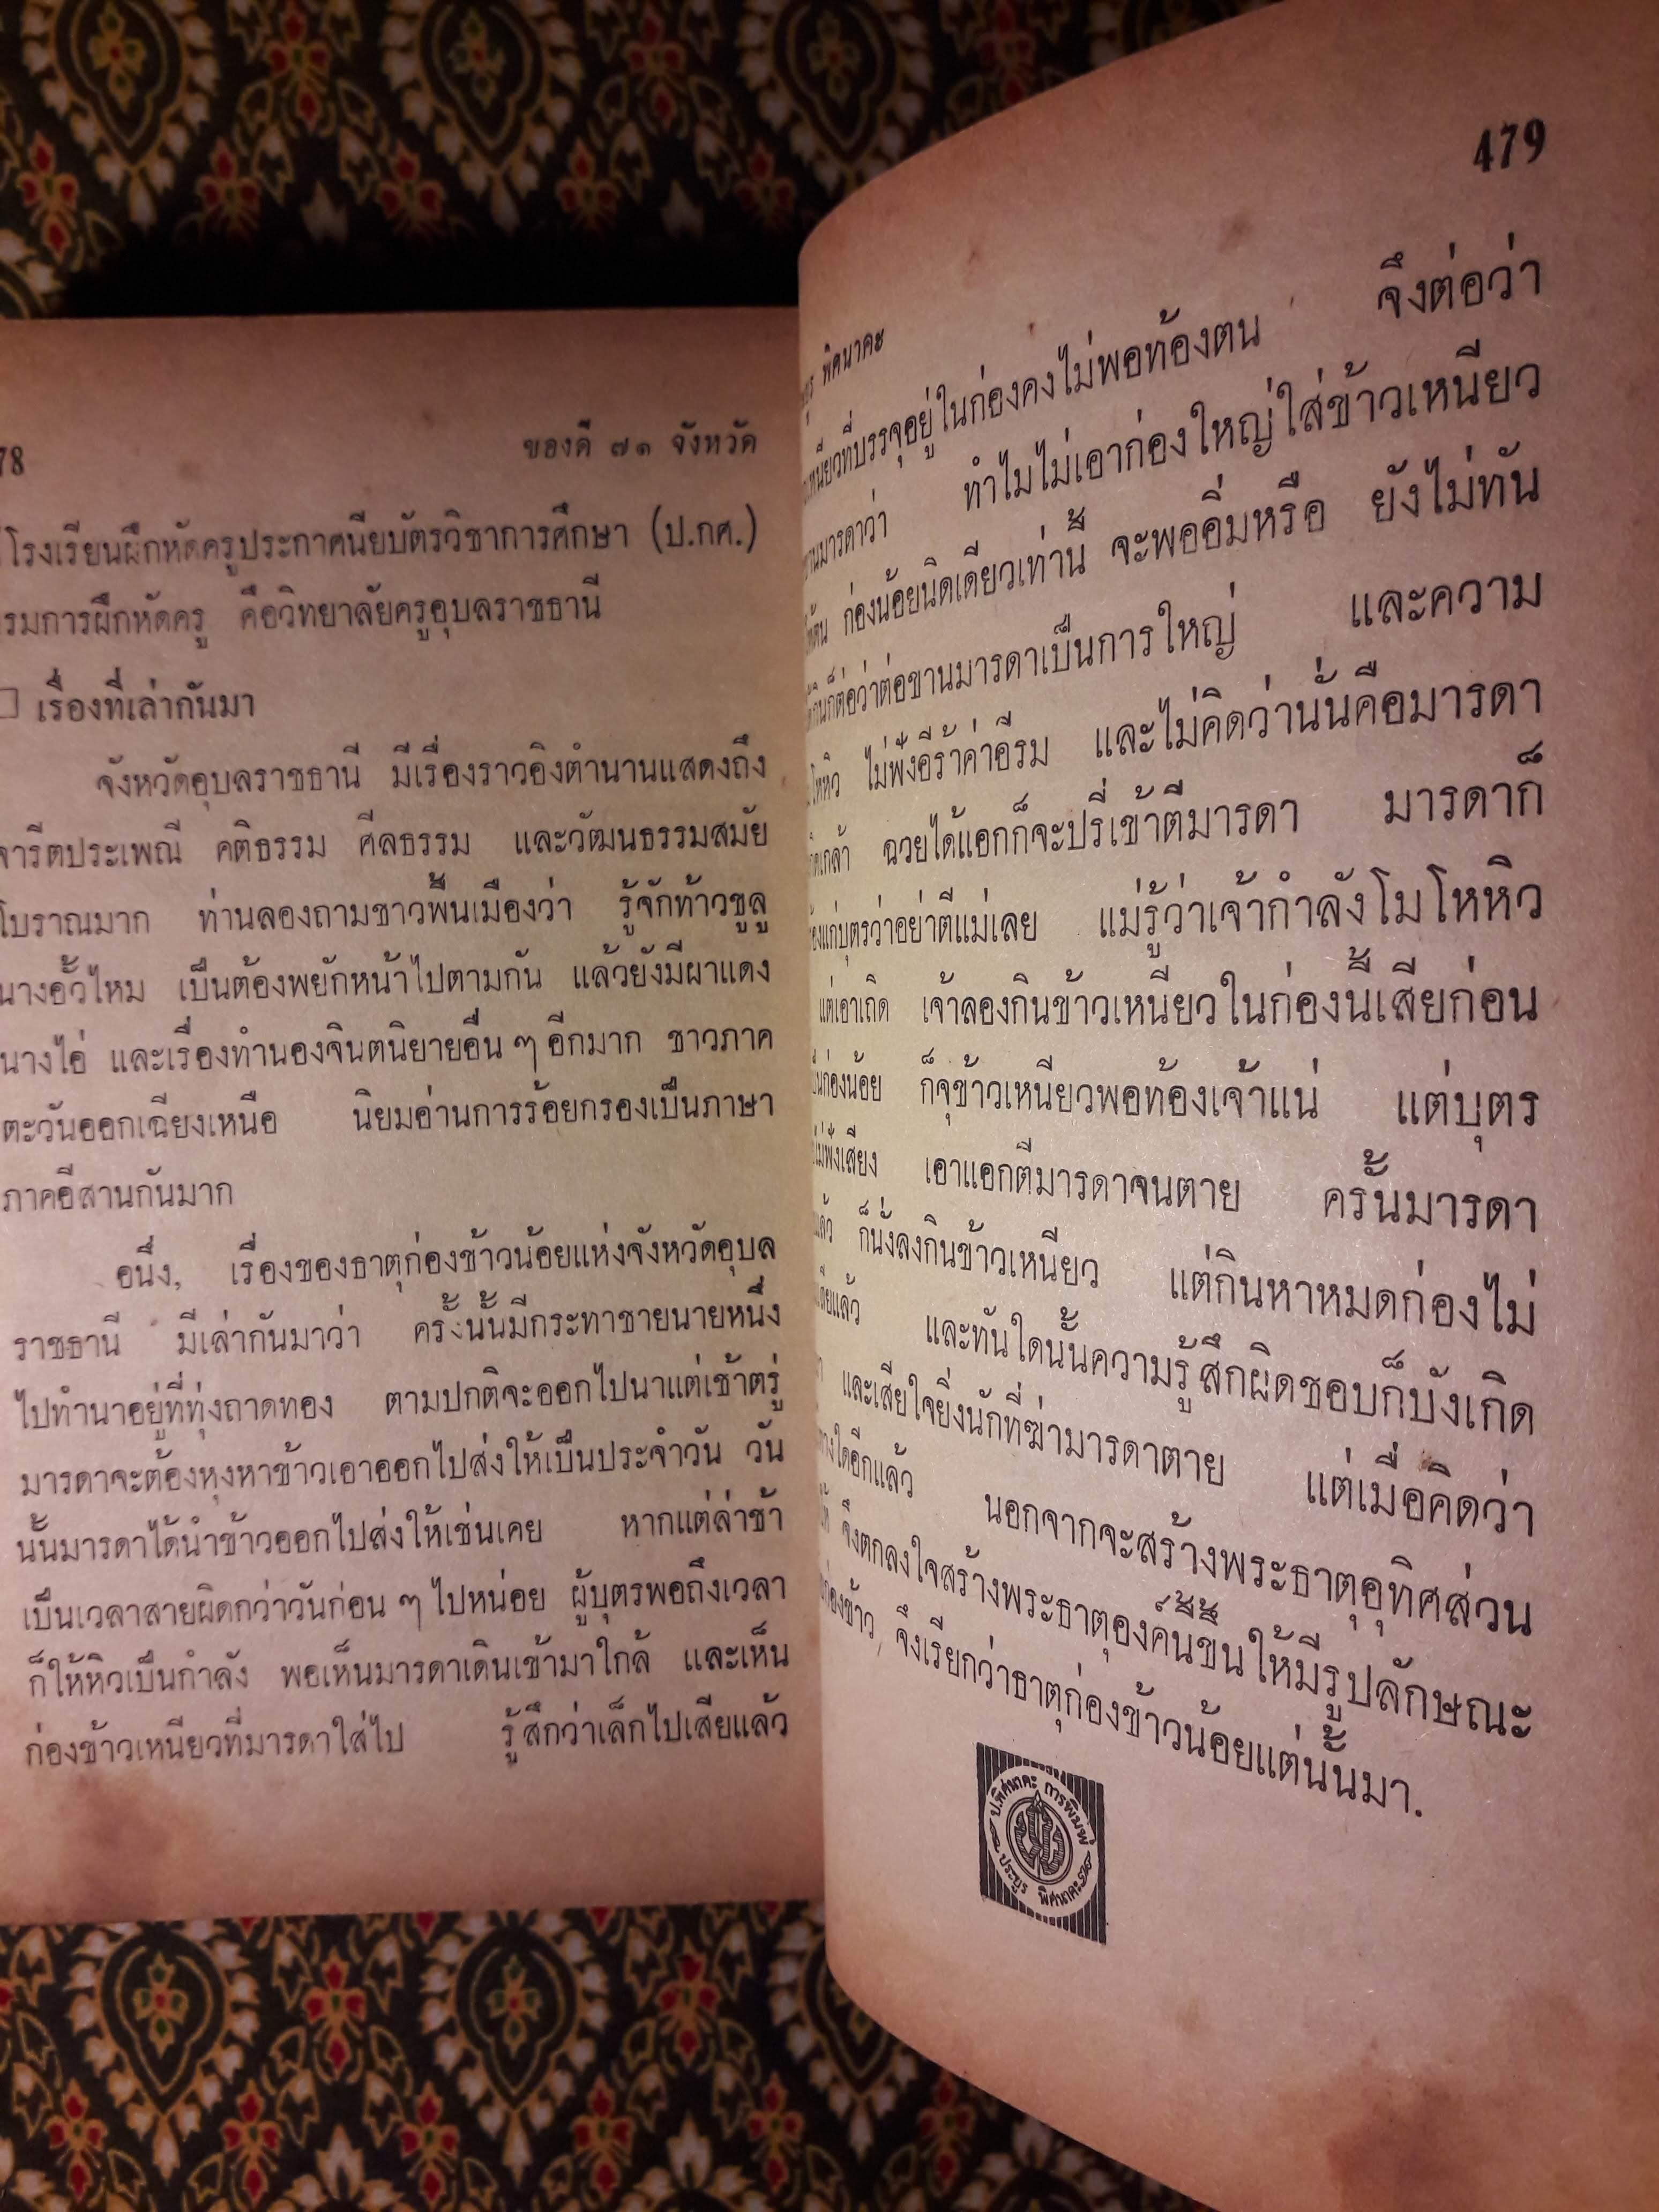 78
ของดี ๗๑ จังหวัด
โรงเรียนฝึกหัดครูประกาศนียบัตรวิชาการศึกษา (ป.กศ.)
รมการฝึกหัดครู คือวิทยาลัยครูอุบลราชธานี
เรื่องที่เล่ากันมา
จังหวัดอุบลราชธานี มีเรื่องราวอิงตำนานแสดงถึง
จารีตประเพณี คติธรรม ศีลธรรม และวัฒนธรรมสมัย
โบราณมาก ท่านลองถามชาวพื้นเมืองว่า รู้จักท้าวขูลู
นางอั้วไหม เป็นต้องพยักหน้าไปตามกัน แล้วยังมีผาแดง
นางไอ่ และเรื่องทำนองจินตนิยายอื่น ๆ อีกมาก ชาวภาค
ตะวันออกเฉียงเหนือ นิยมอ่านการร้อยกรองเป็นภาษา
ภาคอีสานกันมาก
อนึ่ง, เรื่องของธาตุก่องข้าวน้อยแห่งจังหวัดอุบล
ราชธานี มีเล่ากันมาว่า ครั้งนั้นมีกระทาชายนายหนึ่ง
ไปทำนาอยู่ที่ทุ่งถาดทอง ตามปกติจะออกไปนาแต่เช้าตรู่
มารดาจะต้องหุงหาข้าวเอาออกไปส่งให้เป็นประจำวัน วัน
นั้นมารดาได้นำข้าวออกไปส่งให้เช่นเคย หากแต่ล่าช้า
เป็นเวลาสายผิดกว่าวันก่อน ๆ ไปหน่อย ผู้บุตรพอถึงเวลา
ก็ให้หิวเป็นกำลัง พอเห็นมารดาเดินเข้ามาใกล้ และเห็น
ก่องข้าวเหนียวที่มารดาใส่ไป รู้สึกว่าเล็กไปเสียแล้ว
479
พิศนาคะ
เหนียวที่บรรจุอยู่ในก่องคงไม่พอท้องตน จึงต่อว่า
ขานมารดาว่า ทำไมไม่เอาก่องใหญ่ใส่ข้าวเหนียว
ก่องน้อยนิดเดียวเท่านี้ จะพออิ่มหรือ ยังไม่ทัน
กินก็ต่อว่าต่อขานมารดาเป็นการใหญ่ และความ
โหหิว ไม่ฟังอีร้าค่าอีรม และไม่คิดว่านั่นคือมารดา
เกล้า ฉวยได้แอกก็จะปรี่เข้าตีมารดา มารดาก็
แก่บุตรว่าอย่าตีแม่เลย แม่รู้ว่าเจ้ากำลังโมโหหิว
แต่เอาเถิด เจ้าลองกินข้าวเหนียวในก่องนี้เสียก่อน
ก่องน้อย ก็จุข้าวเหนียวพอท้องเจ้าแน่ แต่บุตร
ไม่ฟังเสียง เอาแอกตีมารดาจนตาย ครั้นมารดา
แล้ว ก็นั่งลงกินข้าวเหนียว แต่กินหาหมดก่องไม่
แล้ว และทันใดนั้นความรู้สึกผิดชอบก็บังเกิด
และเสียใจยิ่งนักที่ฆ่ามารดาตาย แต่เมื่อคิดว่า
ทางใดอีกแล้ว นอกจากจะสร้างพระธาตุอุทิศส่วน
จึงตกลงใจสร้างพระธาตุองค์นี้ขึ้นให้มีรูปลักษณะ
ก่องข้าว จึงเรียกว่าธาตุก่องข้าวน้อยแต่นั้นมา.
ป.พิศนาคะ การพิมพ์
ประยูร พิศนาคะ